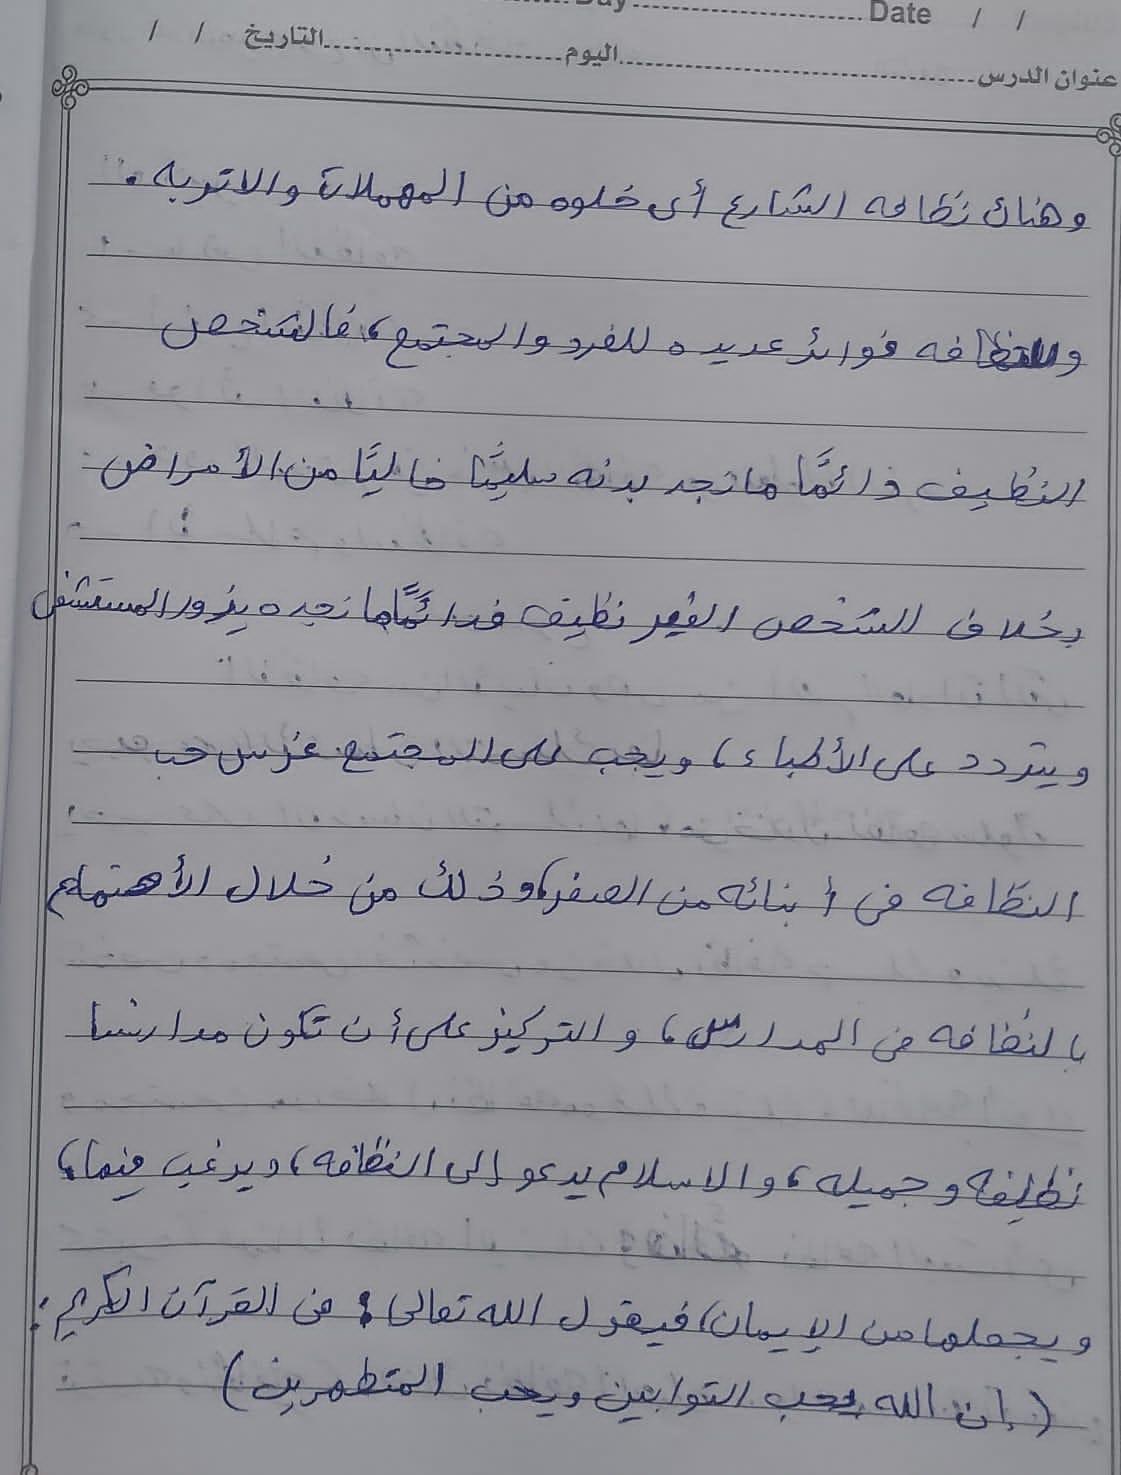 Day........................Date / /
عنوان الدرس........................اليوم........................التاريخ / /
وهناك نظافه الشارع أى خلوه من المهملات والاتربه .
وللنظافه فوائد عديده للفرد والمجتمع، فالشخص
النظيف دائمًا ما تجد بدنه سليمًا خاليًا من الأمراض
بخلاف الشخص الغير نظيف فدائمًا ما نجده يزور المستشفى
ويتردد على الأطباء، ويجب على المجتمع غرس حب
النظافه فى أبنائه من الصغر، وذلك من خلال الأهتمام
بالنظافه فى المدارس، والتركيز على أن تكون مدارسنا
نظيفه وجميله، والاسلام يدعو إلى النظافه، ويرغب فيها،
ويجعلها من الإيمان، فيقول الله تعالى فى القرآن الكريم :
(إن الله يحب التوابين ويحب المتطهرين)